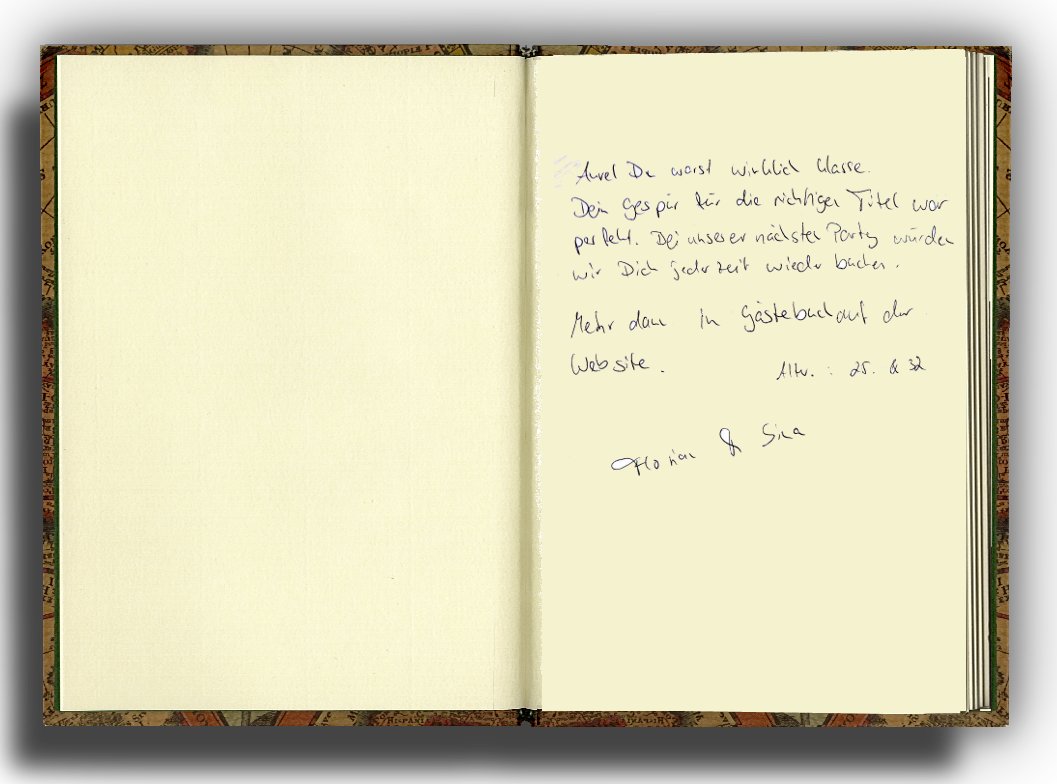 Aurel Du warst wirklich klasse.
Dein Gespür für die richtigen Titel war
perfekt. Bei unserer nächsten Party würden
wir Dich jederzeit wieder buchen.
Mehr dann im Gästebuch auf der
Website.
Alter. : 25. & 32
Florian & Sina